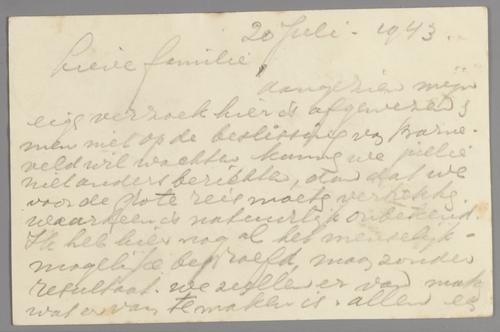 20 Juli - 1943.
Lieve familie,
aangezien mijn
eig. verzoek hier is afgewezen &
men niet op de beslissing v. Barne-
veld wil wachten kunnen we jullie
niet anders berichten, dan dat we
voor de grote reis moeten vertrekken.
waarheen is natuurlijk onbekend.
Ik heb hier nog al het menselijk-
mogelijke beproefd, maar zonder
resultaat. we zullen er van maken
wat er van te maken is. allen